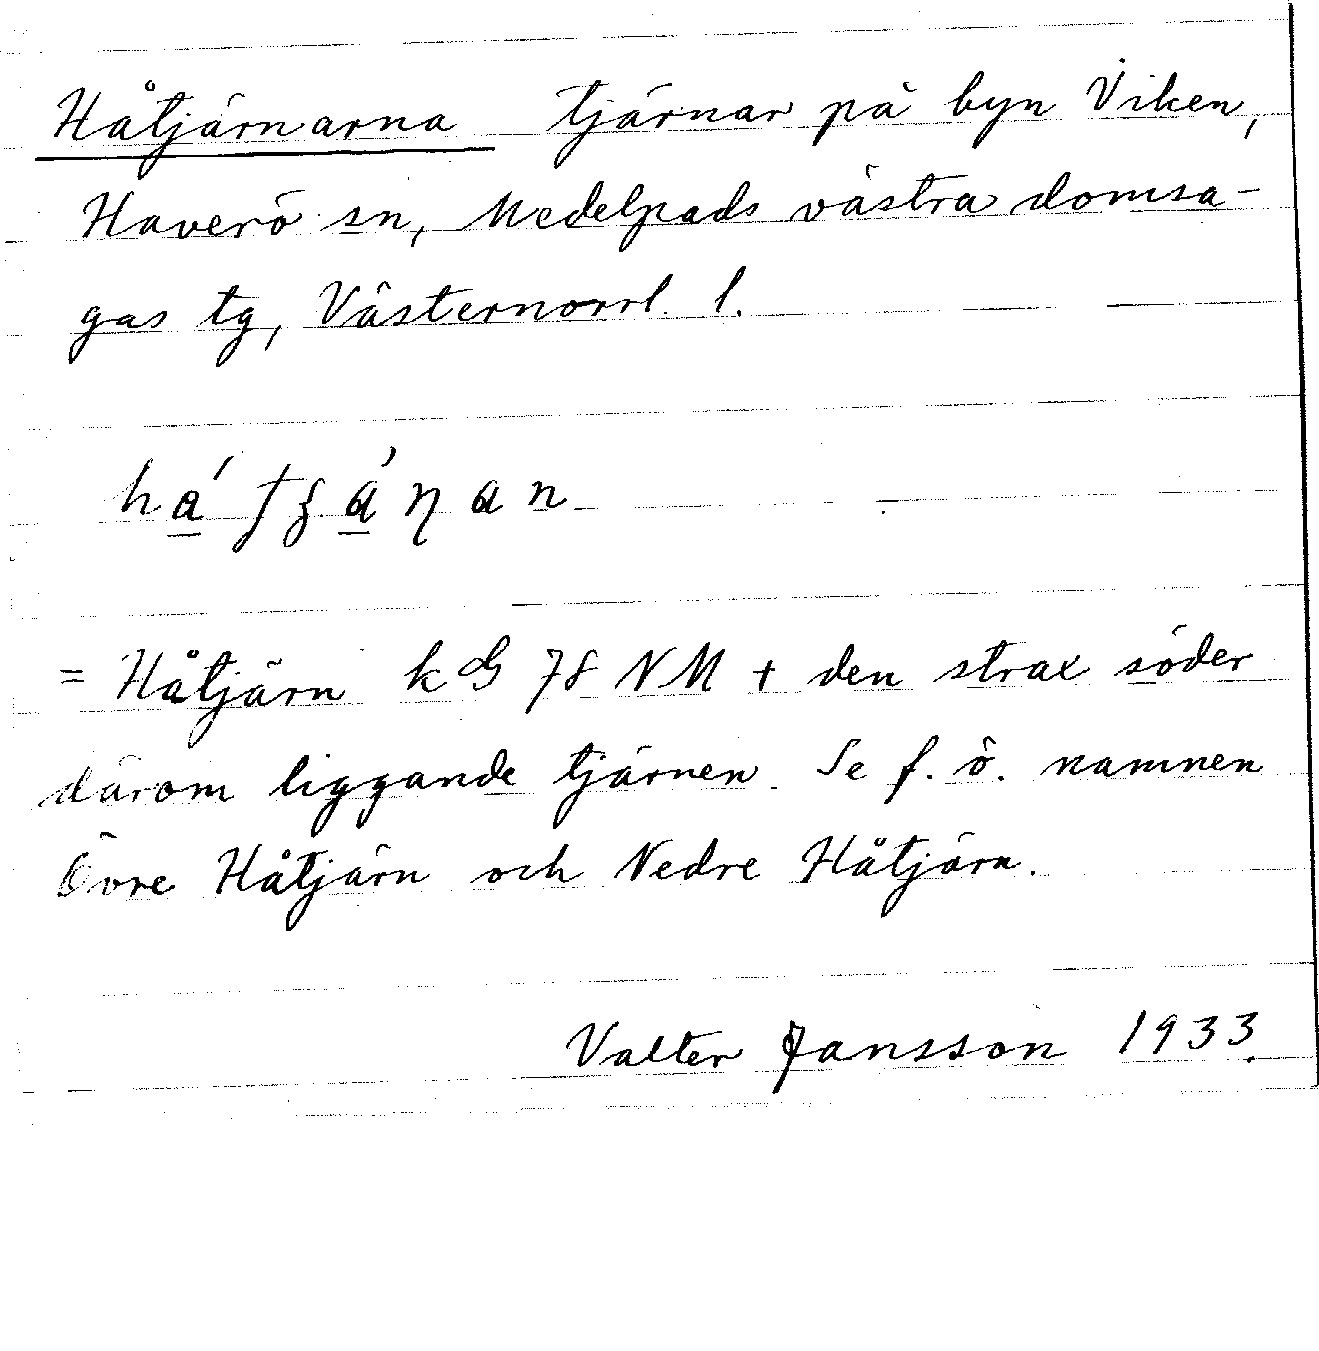 Håtjärnarna tjärnar på byn Viken,
Haverö sn, Medelpads västra domsa-
gas tg, Västernorrl. l.
= Håtjärn k 78 NM + den strax söder
därom liggande tjärnen. Se f. ö. namnen
Övre Håtjärn och Nedre Håtjärn.
Valter Jansson 1933.